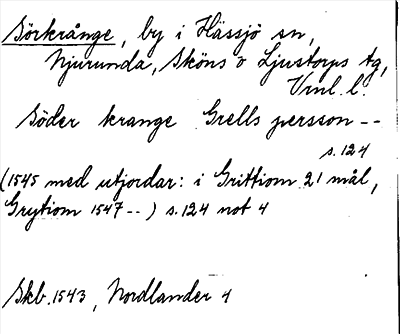 Sörkrånge, by i Hässjö sn,
Njurunda, Sköns o Ljustorps tg,
Vnl. l.
Söder krange Grells persson --
s. 124
(1545 med utjordar: i Grittiom 21 mål,
Grytiom 1547 --) s. 124 not 4
Skb. 1543, Nordlander 4